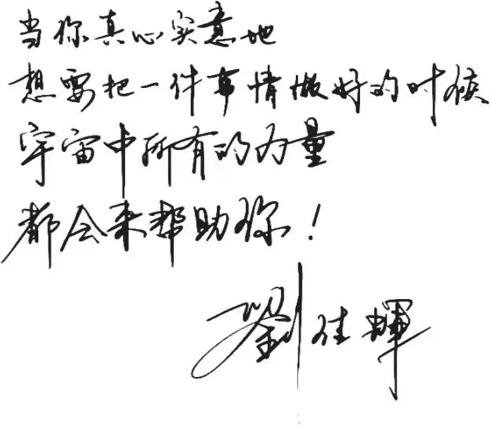 当你真心实意地
想要把一件事情做好的时候
宇宙中所有的力量
都会来帮助你!
劉佳輝